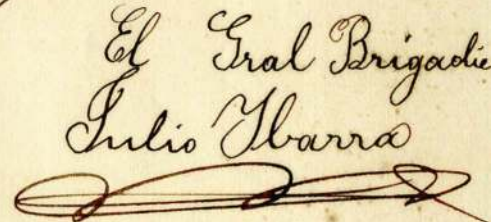 El Gral Brigadie
Julio Ybarra